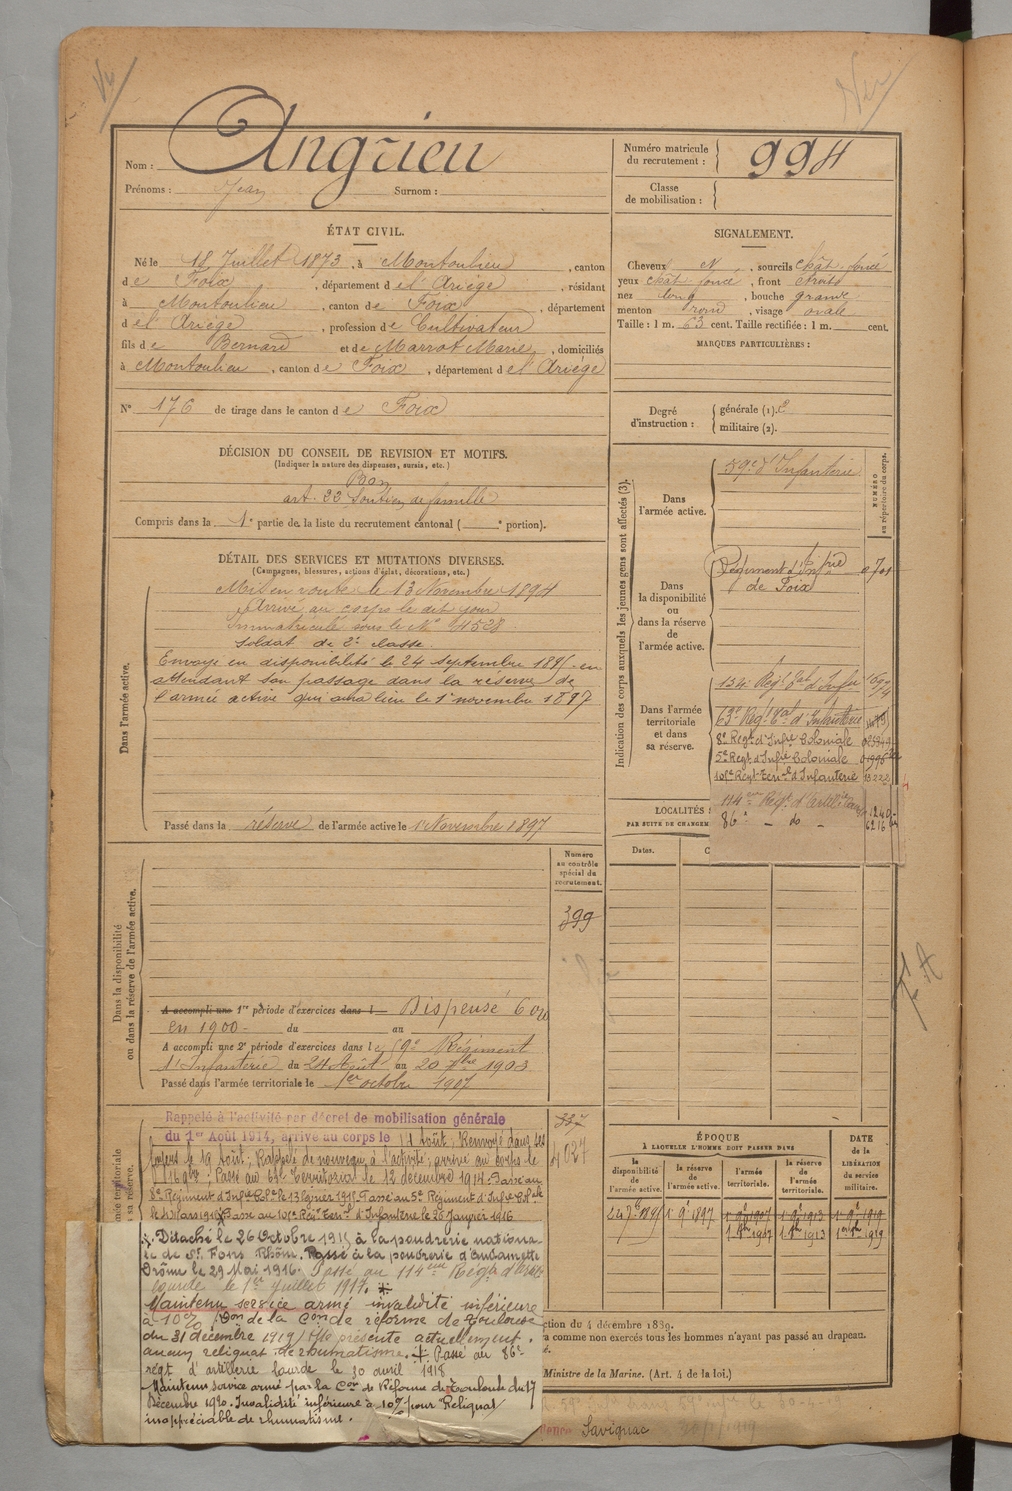 Nom : Angrieu
Prénoms : Jean Surnom :
Numéro matricule du recrutement : 994
Classe de mobilisation :
ÉTAT CIVIL.
Né le 18 Juillet 1873, à Montoulieu, canton
de Foix, département de l'Ariège, résidant
à Montoulieu, canton de Foix, département
de l'Ariège, profession de Cultivateur
fils de Bernard et de Marrot Marie, domiciliés
à Montoulieu, canton de Foix, département de l'Ariège
N° 176 de tirage dans le canton de Foix
SIGNALEMENT.
Cheveux N, sourcils chât. foncé
yeux chât foncé, front étroit
nez long, bouche grande
menton rond, visage ovale
Taille : 1 m. 63 cent. Taille rectifiée : 1 m. cent.
MARQUES PARTICULIÈRES :
Degré d'instruction : générale (1). 2
militaire (2).
DÉCISION DU CONSEIL DE REVISION ET MOTIFS.
(Indiquer la nature des dispenses, sursis, etc.)
Bon
art. 22 Soutien de famille
Compris dans la 1e partie de la liste du recrutement cantonal ( e portion).
DÉTAIL DES SERVICES ET MUTATIONS DIVERSES.
(Campagnes, blessures, actions d'éclat, décorations, etc.)
Dans l'armée active.
Mis en route le 13 Novembre 1894
Arrivé au corps le dit jour
Immatriculé sous le N° 4528
Soldat de 2e classe.
Envoyé en disponibilité le 24 septembre 1895 en
attendant son passage dans la réserve de
l'armée active qui aura lieu le 1er novembre 1897
Passé dans la réserve de l'armée active le 1er Novembre 1897
Indication des corps auxquels les jeunes gens sont affectés (3).
NUMÉRO au répertoire du corps.
Dans l'armée active.
59e d'Infanterie
Dans la disponibilité ou dans la réserve de l'armée active.
Régiment d'Infrie de Foix
Dans l'armée territoriale et dans sa réserve.
134e Régt Eal d'Infrie
63e Régt Eal d'Infanterie
8e Regt d'Infie Coloniale
5e Regt d'Infie Coloniale
101e Regt Terral d'Infanterie
114eme Régt d'artillerie
86e - do -
LOCALITÉS
PAR SUITE DE CHANGEM
Dates.
Numéro au contrôle spécial du recrutement.
399
Dans la disponibilité ou dans la réserve de l'armée active.
A accompli une 1re période d'exercices dans l Dispensé
en 1900 du au
A accompli une 2e période d'exercices dans le 59e Régiment
d'Infanterie du 24 Août au 20 7bre 1903
Passé dans l'armée territoriale le 1er octobre 1907
337
4027
Rappelé à l'activité par décret de mobilisation générale
du 1er Août 1914, arrivé au corps le 14 Août; Renvoyé dans ses
foyers le 19 Août; Rappelé de nouveau à l'activité; arrivé au corps le
16 9bre; Passé au 63e Territorial le 12 décembre 1914. Passé au
8e Régiment d'Infie Colle le 13 février 1915. Passé au 5e Régiment d'Infie Colle
Passé au 101e Regt Terral d'Infanterie le 26 Janvier 1916
Détaché le 26 Octobre 1915 à la poudrerie nationa-
le de St. Fons Rhône. Passé à la poudrerie d'
Drôme le 29 Mai 1916. Passé au 114eme Régt d'Artill.
lourde le 1er juillet 1917.
Maintenu service armé invalidité inférieure
à 10% Don de la Con de réforme de Toulouse
du 31 décembre 1919, présente actuellement
aucun reliquat de rhumatisme. Passé au 86e
régt d'artillerie lourde le 30 avril 1918
Maintenu service armé par la Con de Réforme de Toulouse du 17
Décembre 1920. Invalidité inférieure à 10% pour Reliquat
inappréciable de rhumatisme.
ÉPOQUE
À LAQUELLE L'HOMME DOIT PASSER DANS
DATE DE LA LIBÉRATION du service militaire.
la disponibilité de l'armée active.
la réserve de l'armée active.
l'armée territoriale.
la réserve de l'armée territoriale.
24 7e 1895 1er 9e 1897 1er 9e 1907 1er 9e 1913 1er 9e 1919
1er 8bre 1907 1er 8bre 1913 1er 8bre 1919
ction du 4 décembre 1889.
a comme non exercés tous les hommes n'ayant pas passé au drapeau.
Ministre de la Marine. (Art. 4 de la loi.)
Savignac